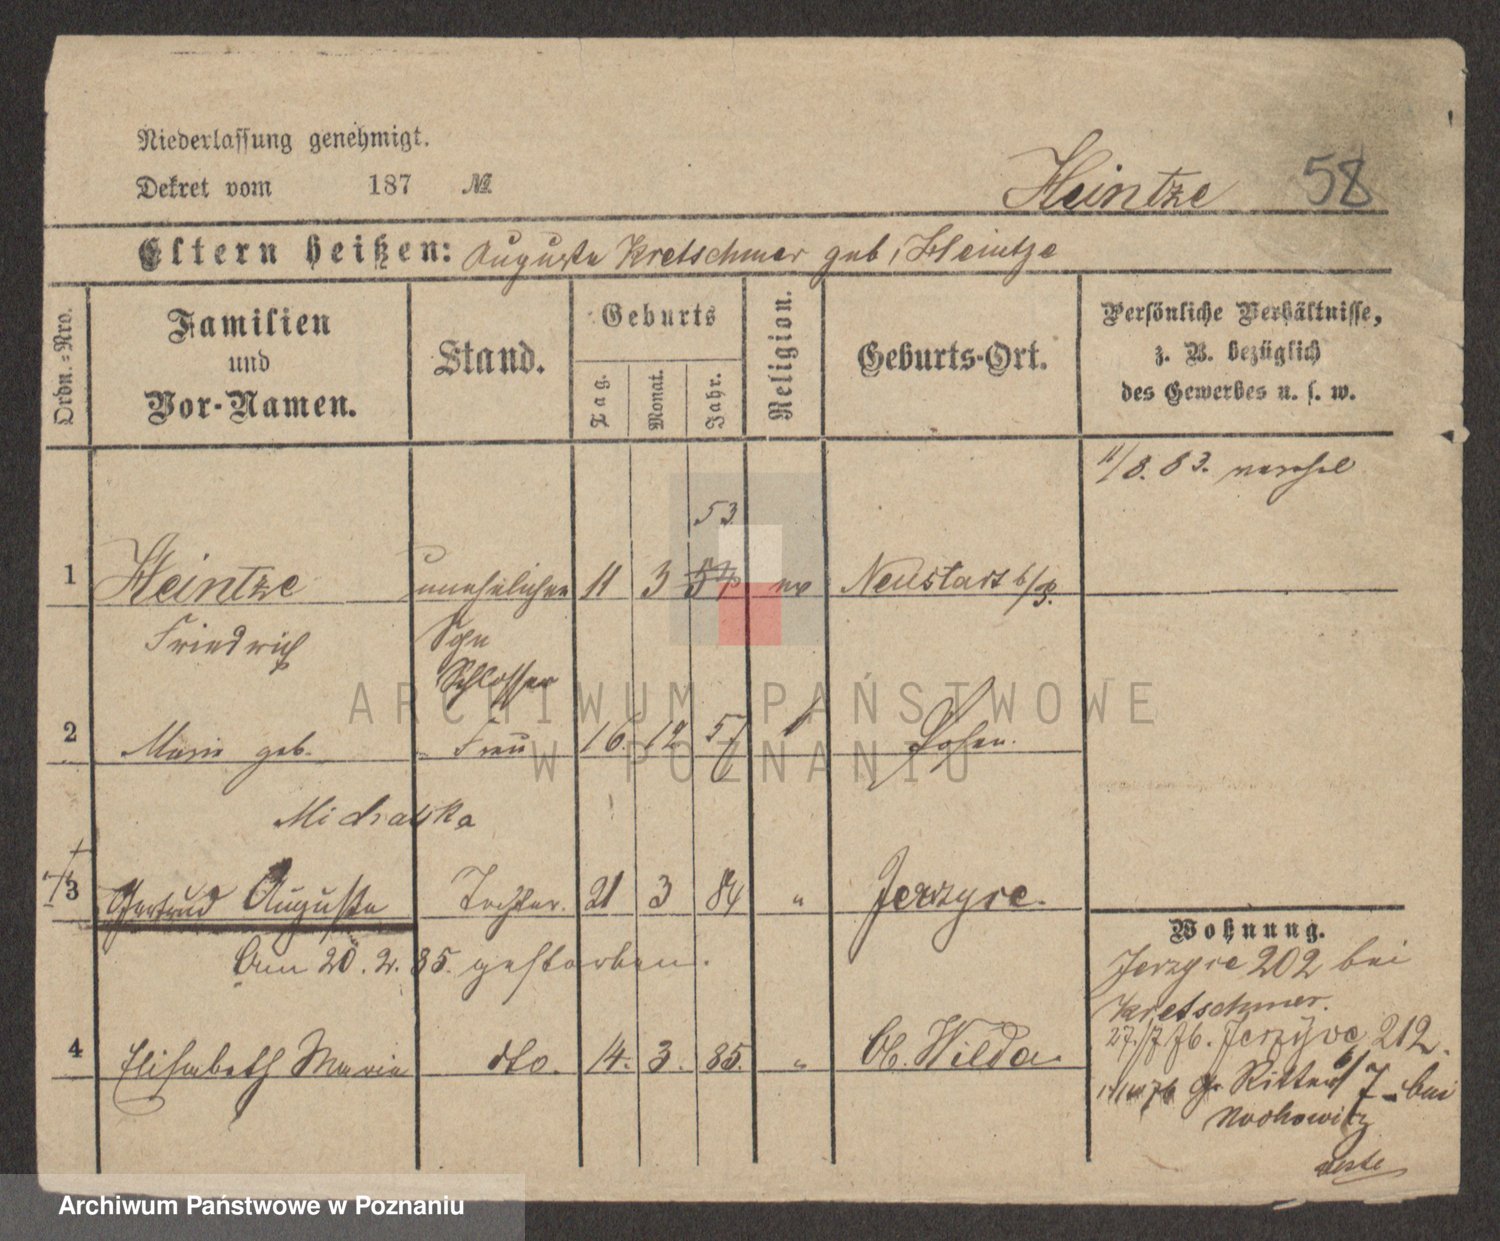 Niederlassung genehmigt.
Dekret vom 187 №
Heintze 58
Eltern heißen: Auguste Kretschmer geb. Heintze
Ordn.=Nro.
Familien
und
Vor-Namen.
Stand.
Geburts
Tag.
Monat.
Jahr.
Religion.
Geburts-Ort.
Persönliche Verhältnisse,
z. B. bezüglich
des Gewerbes u. s. w.
11/8. 83.
53
1 Heintze unehelicher 11 3 54 ev Neustadt b/P.
Friedrich Sohn
Schlosser
2 Marie geb. Frau 16. 12 57 Posen.
Michalska
3 Gertrud Auguste Tochter. 21 3 84 " Jerzyce.
Am 20. 2. 85. gestorben.
4 Elisabeth Marie dto. 14. 3. 85. " Ob. Wilda.
Wohnung.
Jerzyce 202 bei
Kretschmer.
27./7 76. Jerzyce 212.
76 gr Ritterst 7 - bei
Nochowitz
ARCHIWUM PAŃSTWOWE
W POZNANIU
Archiwum Państwowe w Poznaniu